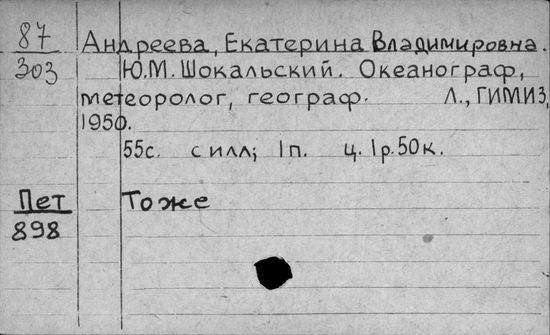 87 Андреева, Екатерина Владимировна.
303 Ю.М. Шокальский. Океанограф,
метеоролог, географ. Л., ГИМИЗ,
1950.
55с. с илл; 1п. ц. 1р.50к.
Пет Тоже
898